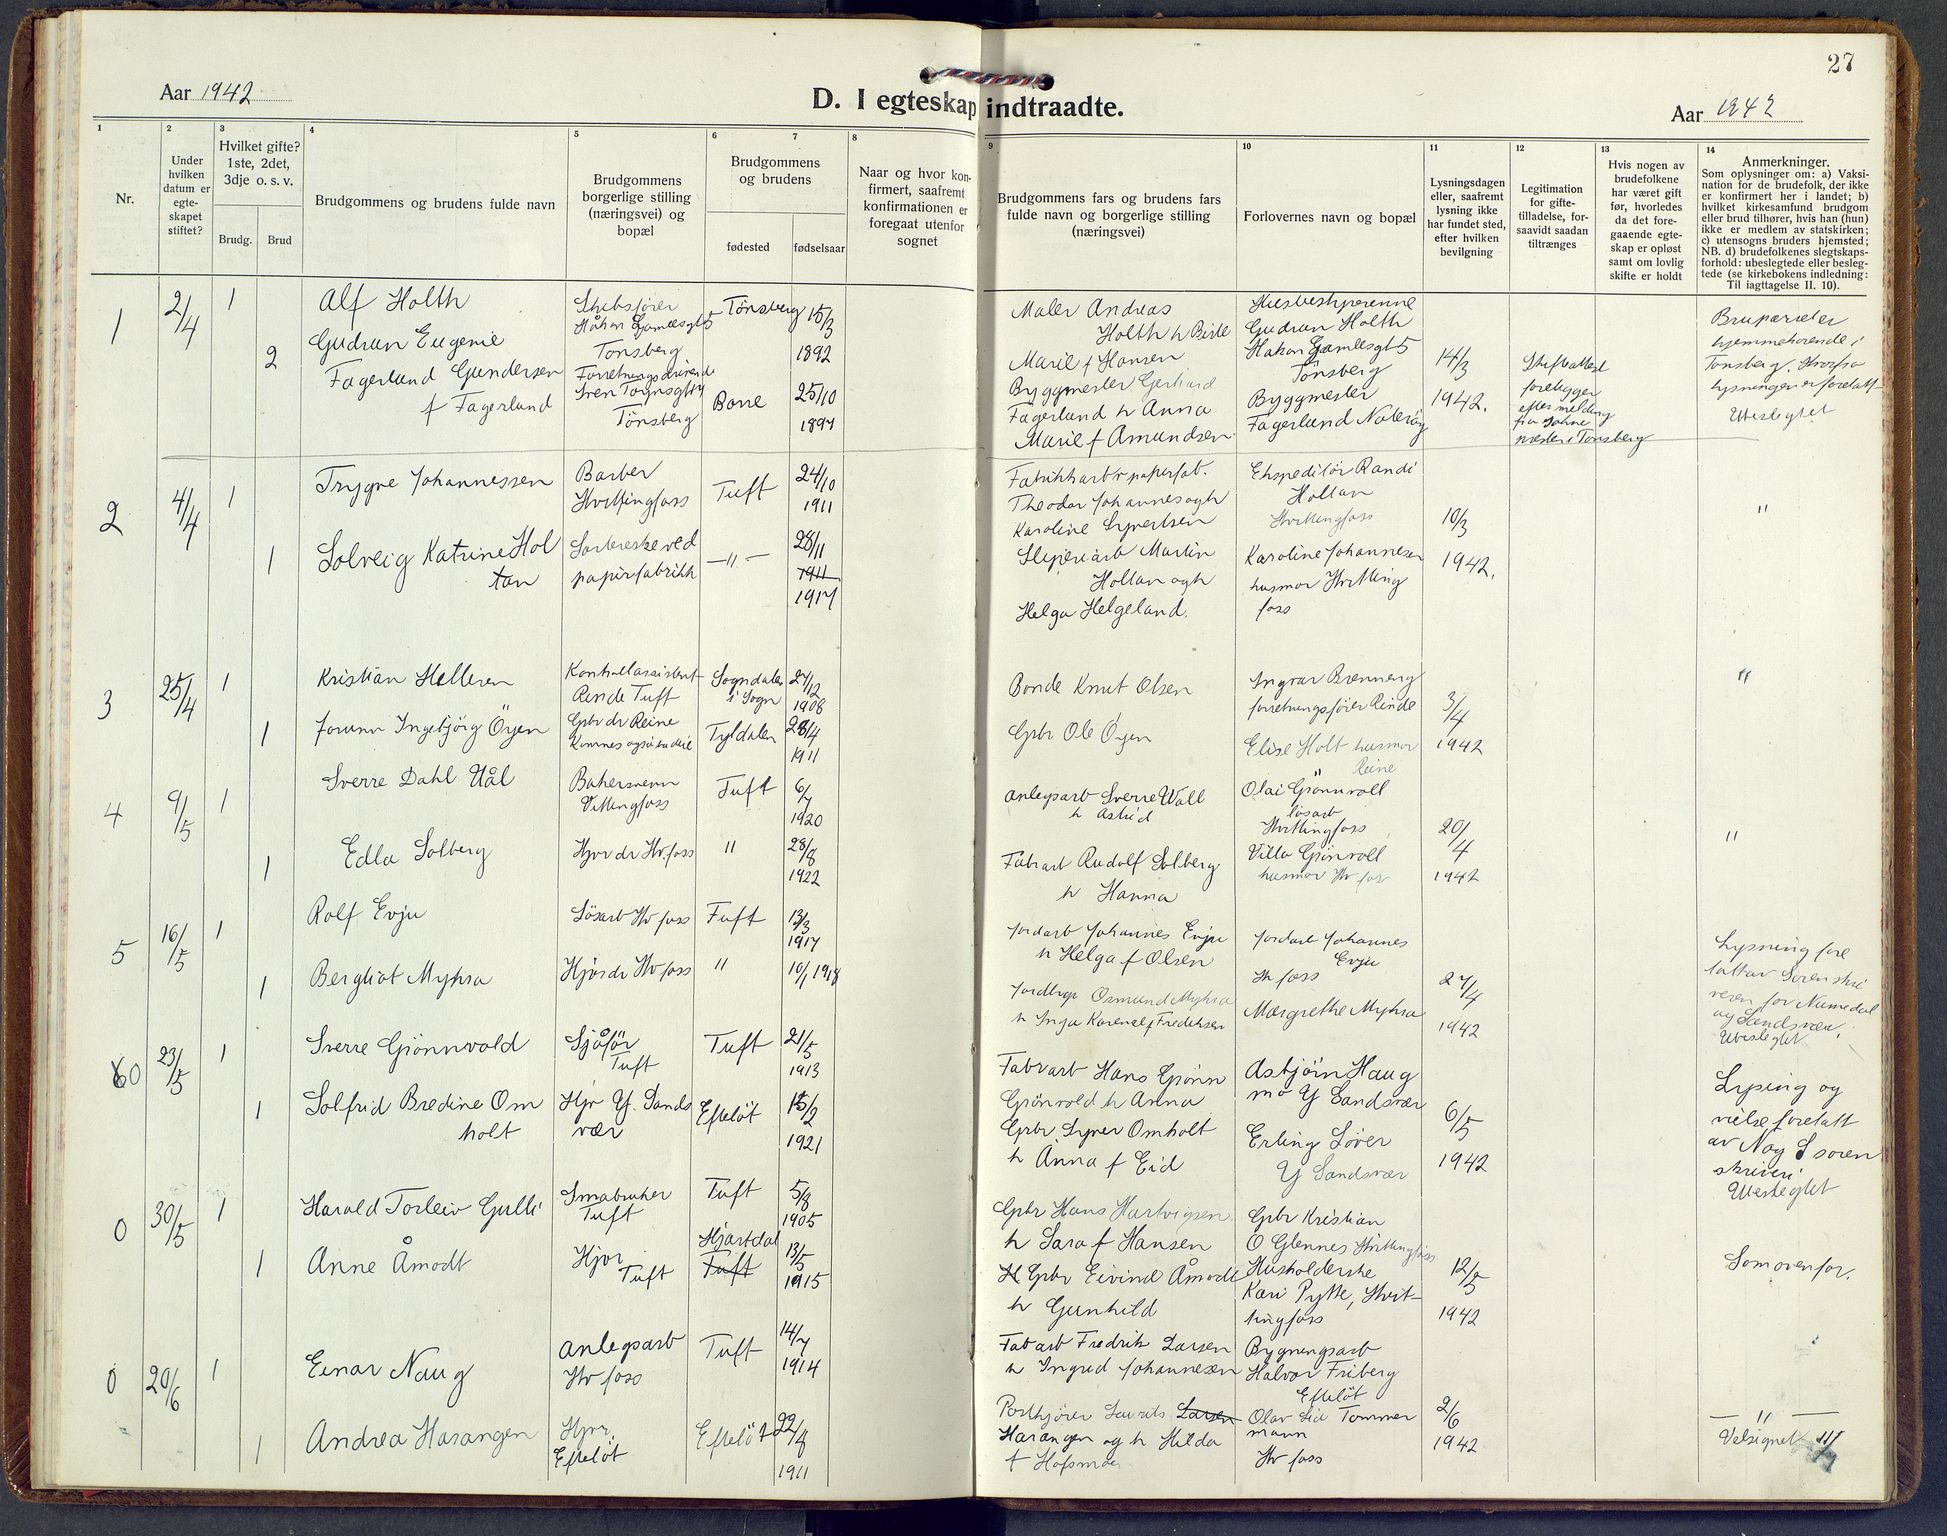 27
Aar 1942
D. I egteskap indtraadte.
Aar 1942
1
Nr.
2
Under hvilken datum er egte-skapet stiftet?
3
Hvilket gifte? 1ste, 2det, 3dje o. s. v.
Brudg.
Brud
4
Brudgommens og brudens fulde navn
5
Brudgommens borgerlige stilling (næringsvei) og bopæl
6
7
Brudgommens og brudens
fødested
fødselsaar
8
Naar og hvor kon-firmert, saafremt konfirmationen er foregaat utenfor sognet
9
Brudgommens fars og brudens fars fulde navn og borgerlige stilling (næringsvei)
10
Forlovernes navn og bopæl
11
Lysningsdagen eller, saafremt lysning ikke har fundet sted, efter hvilken bevilgning
12
Legitimation for gifte-tilladelse, for-saavidt saadan tiltrænges
13
Hvis nogen av brudefolkene har været gift før, hvorledes da det fore-gaaende egte-skap er opløst samt om lovlig skifte er holdt
14
Anmerkninger.
Som oplysninger om: a) Vaksi-nation for de brudefolk, der ikke er konfirmert her i landet; b) hvilket kirkesamfund brudgom eller brud tilhører, hvis han (hun) ikke er medlem av statskirken; c) utensogns bruders hjemsted; NB. d) brudefolkenes slegtskaps-forhold: ubeslegtede eller besleg-tede (se kirkebokens indledning: Til iagttagelse II. 10).
1
2/4
1
Alf Holth
Skibsfører
Håkon Gamlesgt 5
Tønsberg
Tønsberg
15/3
1892
Maler Andreas
Holth h Birte
Marie f Hansen
Husbestyrerinne
Gudrun Holth
Hakon Gamlesgt 5
Tønsberg
14/3
1942.
Skifteattest
foreligger
efter melding
Tønsberg
Brupæret er
hjemmehørende i
Tønsberg, hvorfra
lysningen er foretatt
Ubeslegtet
2
Gudrun Eugenie
Fagerlund Gundersen
f Fagerlund
Forretningsdrivende
Tønsberg
Borre
25/10
1897
Byggmester Gerhard
Fagerlund h Anna
Marie f Amundsen
Byggmester
Fagerlund Nøterøy
2
4/4
1
Trygve Johannessen
Barber
Hvittingfoss
Tuft
24/10
1911
Fabrikkarb v papirfab.
Theodor Johannes ogh
Karoline Syvertsen
Ekspeditør Randi
Holtan
Hvittingfoss
10/3
1942.
"
1
Solveig Katrine Hol
tan
Sorterske ved
papirfabrikk
— " —
28/11
1911
1917
Sliperiarb Martin
Holtan ogh
Helga Helgeland.
Karoline Johannesen
husmor Hvitting
foss
3
25/4
1
Kristian Helleren
Kontrollassistent
Rinde Tuft
Sogndalen
i Sogn
27/12
1908
Bonde Knut Olsen
Ingvar Brenneng
forretningsfører Rinde
3/4
1942
"
1
Jorunn Ingebjørg Öyen
Gbr dr Reine
Tyldalen
28/4
1911
Gbr Ole Öyen
Elise Holt husmor
Reine
4
9/5
1
Sverre Dahl Uål
Bakersvenn
Vittingfoss
Tuft
6/7
1920
anlegsarb Sverre Wall
h Astrid
Olai Grönnvoll
løsarb
Hvittingfoss
20/4
1942
"
1
Edla Solberg
Hjvr dr Hv.foss
"
28/8
1922
Fabrarb Rudolf Solberg
h Hanna
Villa Grönvoll
husmor Hv foss
5
16/5
1
Rolf Evju
Løsarb Hv foss
Tuft
13/3
1917
Jordarb Johannes Evju
h Helga f Olsen
Jordarb Johannes
Evju
Hv foss
27/4
1942
Lysning fore
tatt av Sorenskri
veren for Numedal
og Sandsvær.
Ubeslegtet
1
Bergliot Myhra
Hjvr dr Hv foss
"
10/1 1918
Jordbrgr Osmund Myhra
h Inga Karense f Fredriksen
Margrethe Myhra
60
23/5
1
Sverre Grönnvold
Sjåför
Tuft
Tuft
21/5
1913
Fabrarb Hans Grönn
Grönvold h Anna
Asbjörn Haug
mo Y Sandsvær
6/5
1942
Lysing og
vielse foretatt
av N og S soren
skriveri
Ubeslegtet
1
Solfrid Bredine Om
holt
Hjv Y. Sands
vær
Efteløt
15/2
1921
Gbr Syver Omholt
h Anna f Eid
Erling Löver
Y Sandsvær
0
30/5
1
Harald Torleiv Gulli
Småbruker
Tuft
Tuft
5/8
1905
Gbr Hans Hartvigsen
h Sara f Hansen
Gbr Kristian
O Glennes Hvittingfoss
12/5
1942
Som ovenfor.
1
Anne Åmodt
Hjvr
Tuft
Hjartdal
Tuft
13/5
1915
H Gbr Eivind Åmodt
h Gunhild
Husholderske
Kari Pytte, Hvit-
tingfoss
0
20/6
1
Einar Naug
anlegsarb
Hv foss
Tuft
14/7
1914
Fabarb Fredrik Larsen
h Ingrid Johannesen
Bygningsarb
Halvor Friberg
Efteløt
2/6
1942
— " —
Velsignet
1
Andrea Hasangen
Hjvr.
Efteløt
Efteløt
22/8
1911
Postkjører Laurits Larsen
Hasangen og h Hilda
f Hofsmo
Olav Lia Tømmer
mann
Hv foss